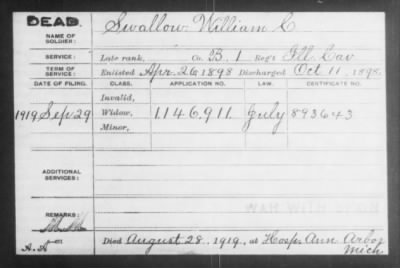 DEAD.
NAME OF SOLDIER: Swallow William C
SERVICE: Late rank, Co. B. 1 Reg't Ill Cav
TERM OF SERVICE: Enlisted Apr. 26 1898 Discharged Oct. 11. 1898.
DATE OF FILING. CLASS. APPLICATION NO. LAW. CERTIFICATE NO.
Invalid,
1919 Sep 29 Widow, 1146.911. July 893643
Minor,
ADDITIONAL SERVICES:
REMARKS:
Died August 28. 1919., at Hosp. Ann Arbor
Mich